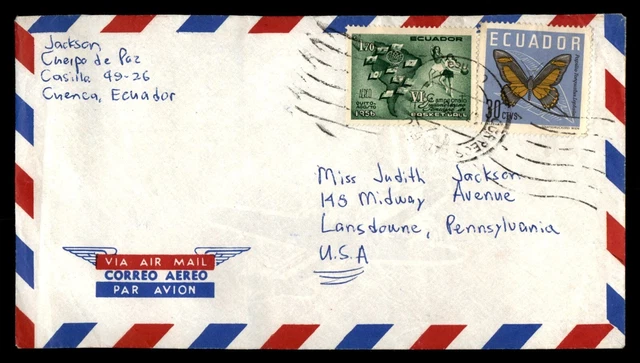 Jackson
Cuerpo de Paz
Casilla 49-26
Cuenca, Ecuador
ECUADOR
1.70
AEREO
QUITO-
AGOSTO
1956
VI Campeonato
BASKET-BALL
ECUADOR
30 CTVS.
Miss Judith Jackson
148 Midway Avenue
Lansdowne, Pennsylvania
U.S.A
VIA AIR MAIL
CORREO AEREO
PAR AVION